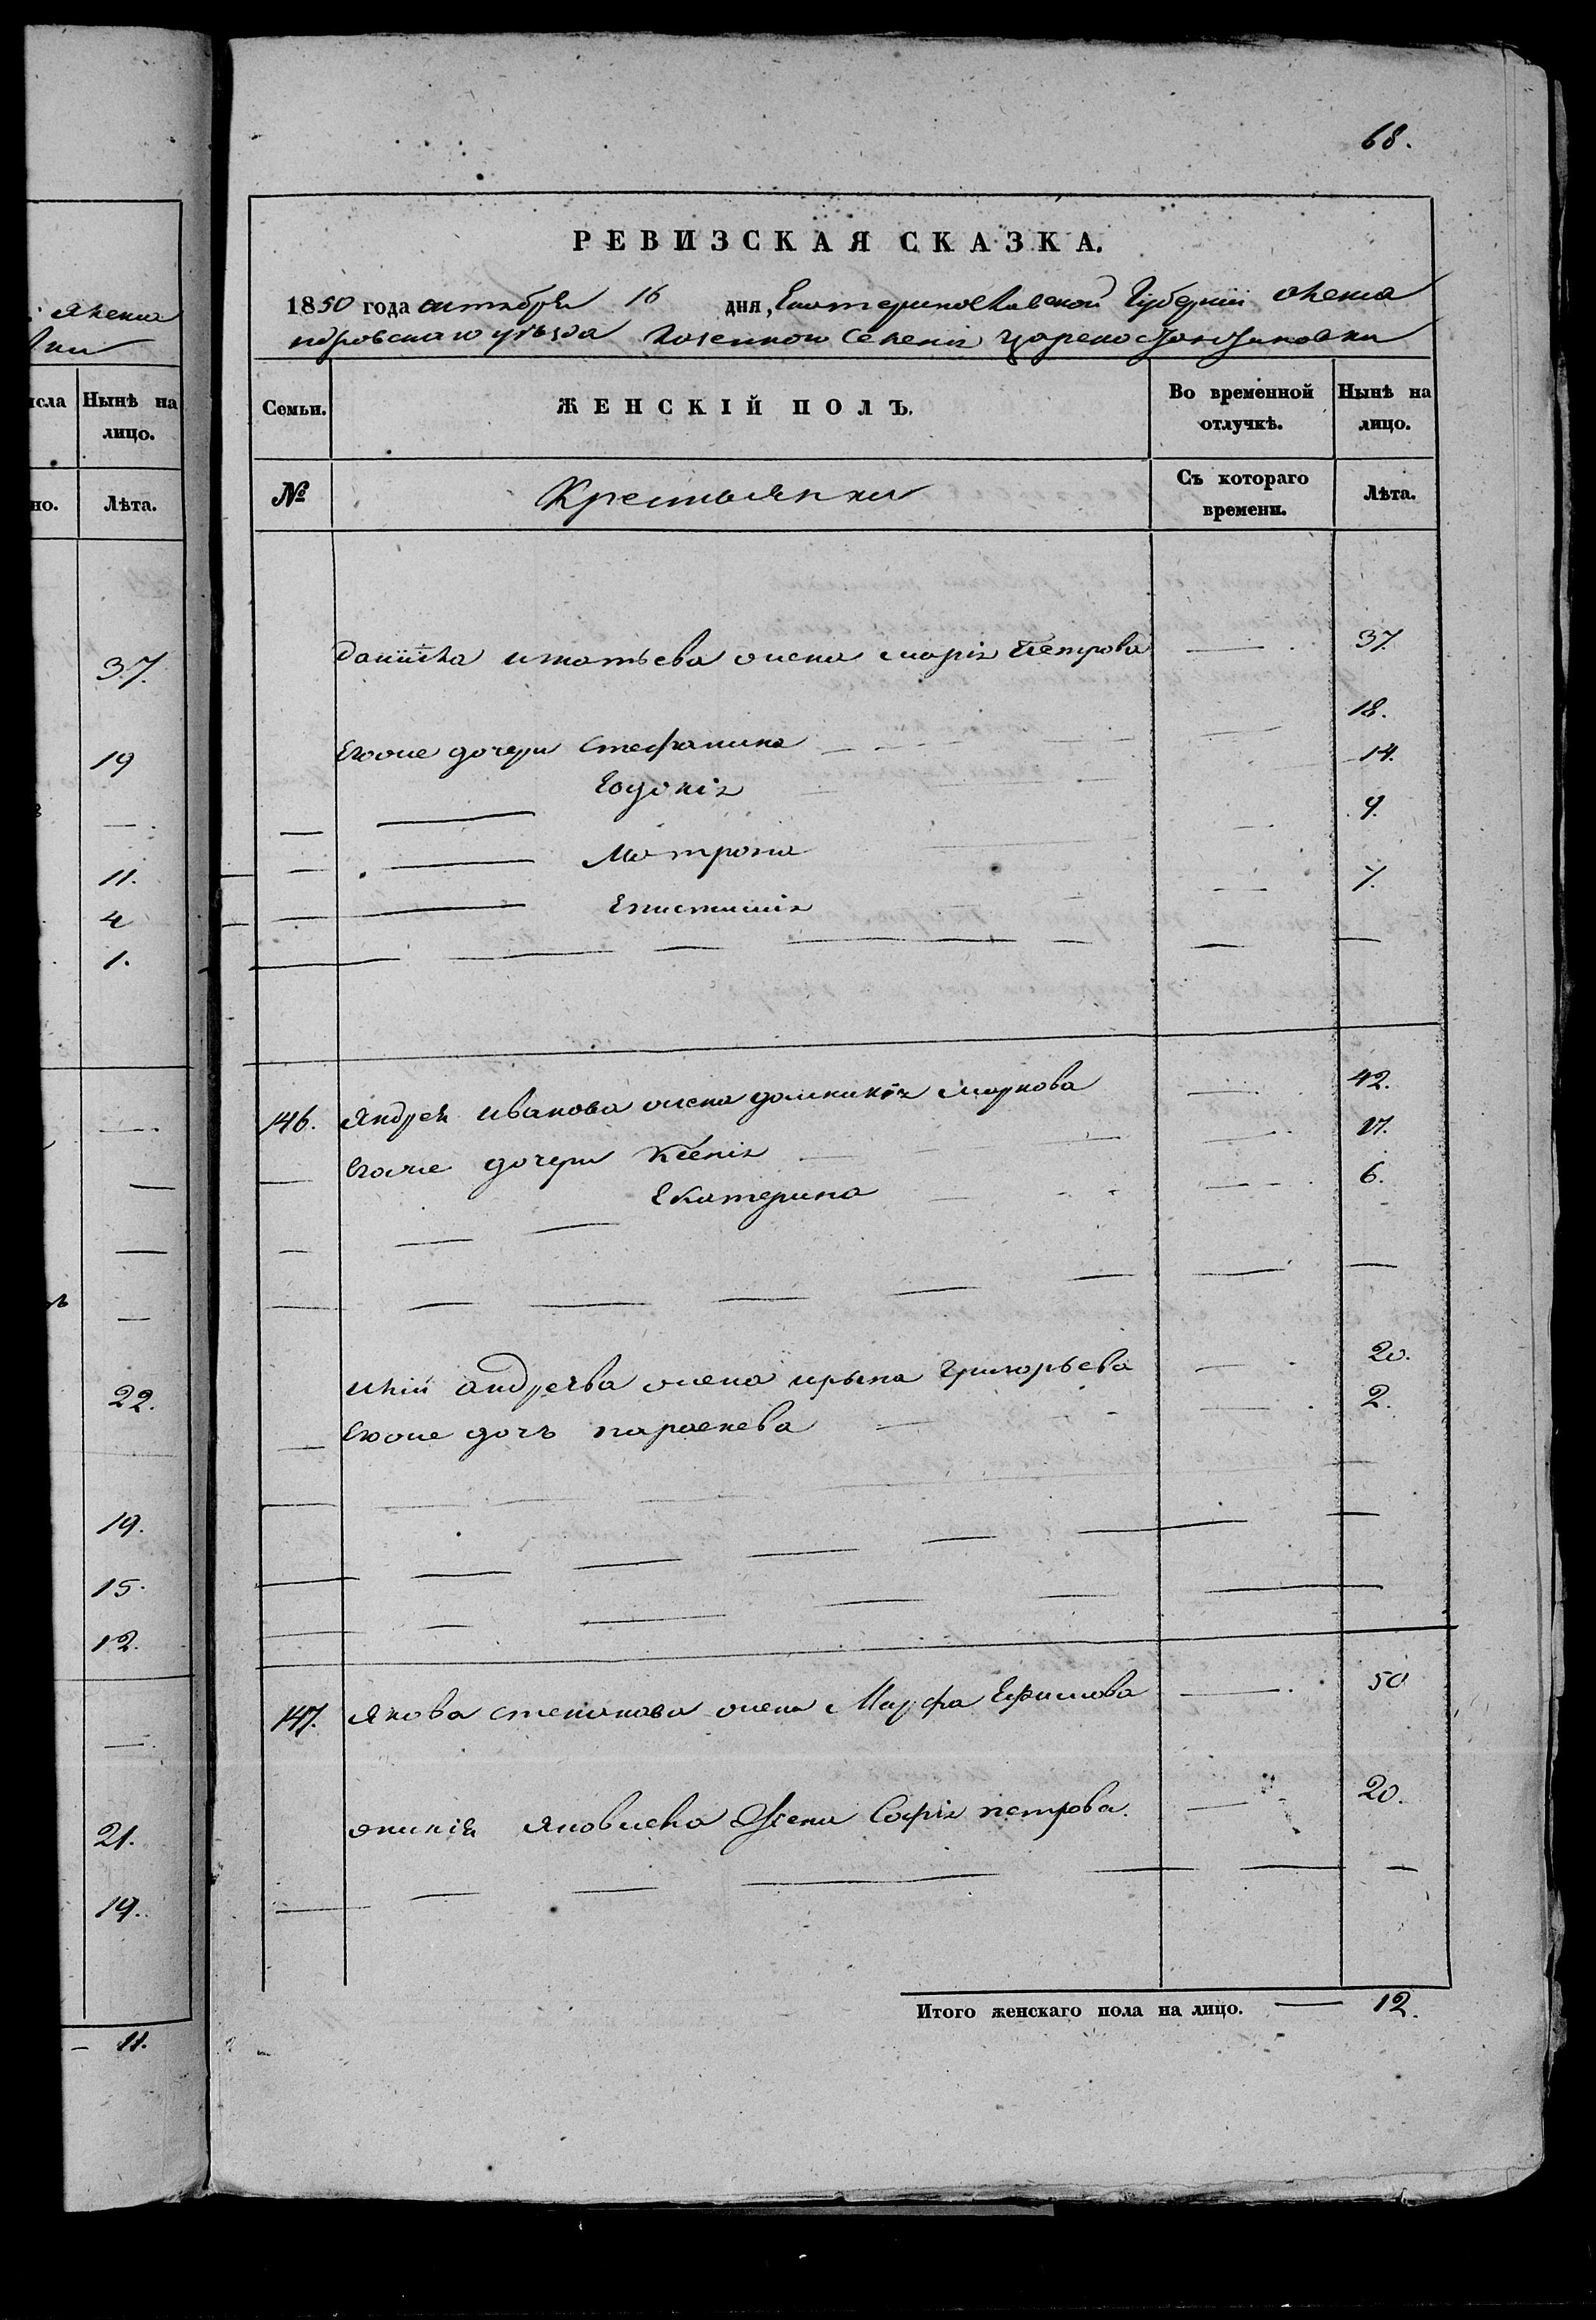 68.
РЕВИЗСКАЯ СКАЗКА.
1850 года октября 16 дня, Екатеринославской Губернии Алекса
ндровскаго уѣзда Казенного Селенія Царекостантиновки
Семьи. ЖЕНСКІЙ ПОЛЪ. Во временной отлучкѣ. Нынѣ на лицо.
№ Крестьянки Съ котораго времени. Лѣта.
Данiила игнатьева жена марія Петрова — 37.
Егоже дочери Стефанида — 18.
Евдокія 14.
Матрона 9.
Епистимія 7.
146. Андрея иванова жена домникія маркова — 42.
Егоже дочери Ксенія — 17.
Екатерина 6.
андреява жена ирына григорьева — 20.
Егоже дочь параскева 2.
147. Якова степанова жена Марфа Ефимова — 50
Яковлева Жена Софія петрова. — 20.
Итого женскаго пола на лицо. — 12.
исла Нынѣ на лицо.
но. Лѣта.
37.
19
11.
4
1.
22.
19.
15.
12.
21.
19.
— 11.